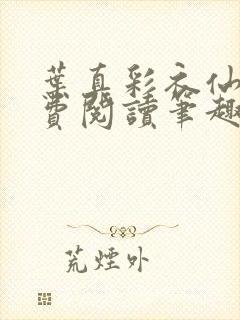 葉真彩衣仙
費閱讀筆趣
荒煙外